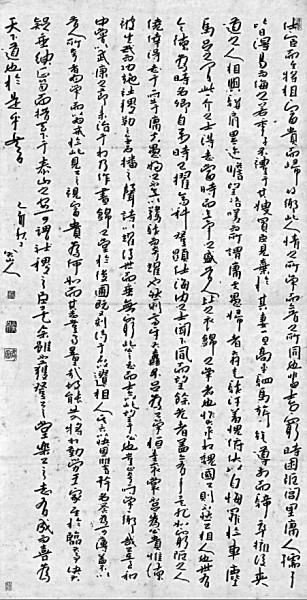 仕宦而將相富貴而歸故鄉此人情之所榮而今昔之所同也當士方窮時困阨閭里庸人孺子
皆得易而侮之若季子不禮於其嫂買臣見棄於其妻一旦高車駟馬旗旄導前而騎卒擁後夾
道之人相與駢肩累迹瞻望咨嗟而所謂庸夫愚婦者奔走駭汗羞愧俯伏以自悔罪於車塵
馬足之間此一介之士得志當時意氣之盛昔人比之衣錦之榮者也惟丞相魏國公則不然公相人也世有
令德為時名卿自公少時已擢高科登顯仕海內之士聞下風而望餘光者蓋亦有年矣非如窮阨之人
僥倖得志於一時出於庸夫愚婦之不意以驚駭而夸耀之也然則高牙大纛不足為公榮桓圭袞裳不足為公貴惟德
被生民而功施社稷勒之金石播之聲詩以耀後世而垂無窮此公之志而士亦以此望於公也豈止夸一時而榮一鄉哉公在至和
中嘗以武康之節來治於相乃作晝錦之堂於後圃既又刻詩於石以遺相人其言以快恩讎矜名譽為可薄蓋不以
昔人所夸者為榮而以為戒於此見公之視富貴為何如而其志豈易量哉故能出入將相勤勞王家至於臨大事決
大議垂紳正笏而措天下於泰山之安可謂社稷之臣矣余雖不獲登公之堂樂公之志有成而喜為
天下道也於是乎書
八大山人